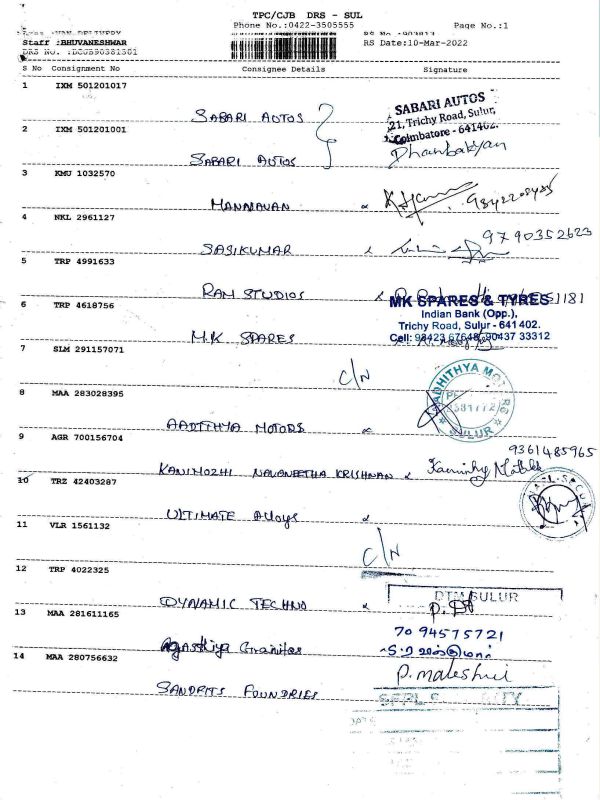 TPC/CJB DRS - SUL
Phone No.:0422-3505555 Page No.:1
Staff :BHUVANESHWAR RS Date:10-Mar-2022
S No Consignment No Consignee Details Signature
1 IXM 501201017
SABARI AUTOS
SABARI AUTOS
21, Trichy Road, Sulur,
Coimbatore - 641402.
2 IXM 501201001
SABARI AUTOS
3 KMU 1032570
MANALAVAN
4 NKL 2961127
SASIKUMAR 9790352623
5 TRP 4991633
RAM STUDIOS
6 TRP 4618756
MK SPARES & TYRES
Indian Bank (Opp.),
Trichy Road, Sulur - 641 402.
Cell: 98423 67648, 90437 33312
M.K SPARES
7 SLM 291157071
C/N
8 MAA 283028395
AADITHYA MOTORS
SULUR
9 AGR 700156704
9361485965
KANIMOZHI NAVANEETHA KRISHNAN
10 TRZ 42403287
ULTIMATE Alloys
11 VLR 1561132
C/N
12 TRP 4022325
DYNAMIC TECHNO
SULUR
13 MAA 281611165
70 94575721
Agasthiya Granites
14 MAA 280756632
SANDFITS FOUNDRIES